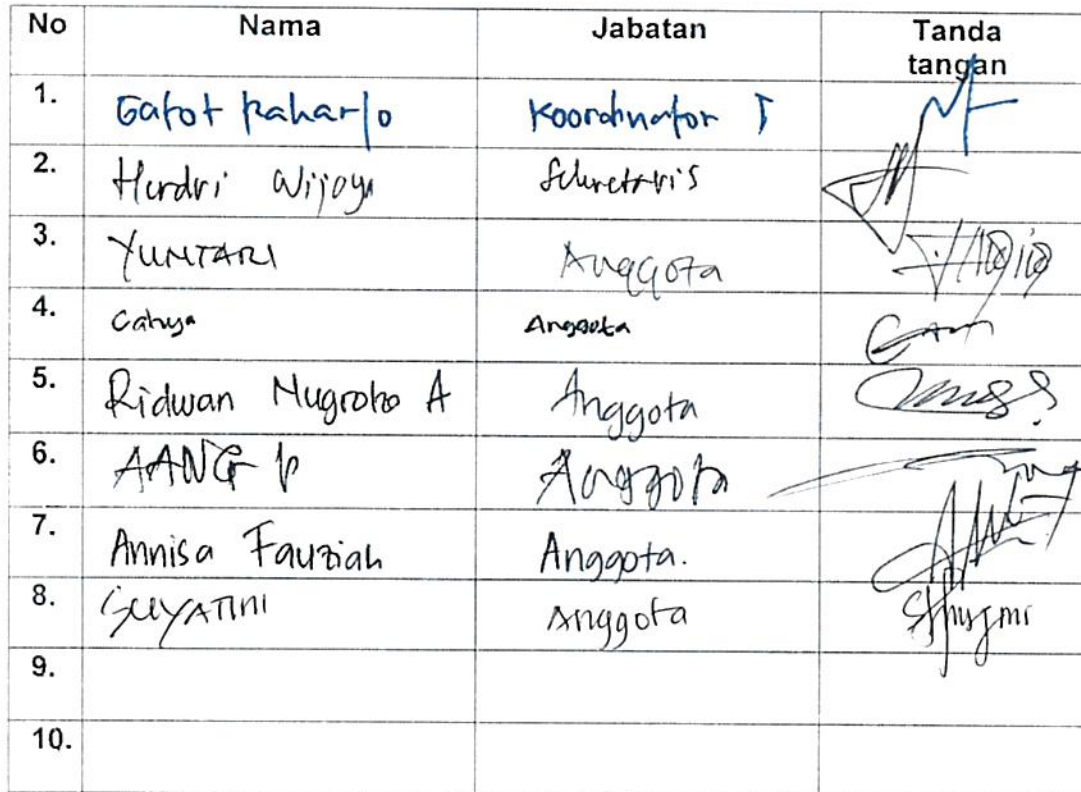 No Nama Jabatan Tanda
tangan
1. Gatot Raharjo Koordinator I
2. Hendri Wijaya Sekretaris
3. YUNTARI Anggota
4. Cahya Anggota
5. Ridwan Nugroho A Anggota
6. AANG P Anggota
7. Annisa Fauziah Anggota.
8. SUYATINI Anggota
9.
10.